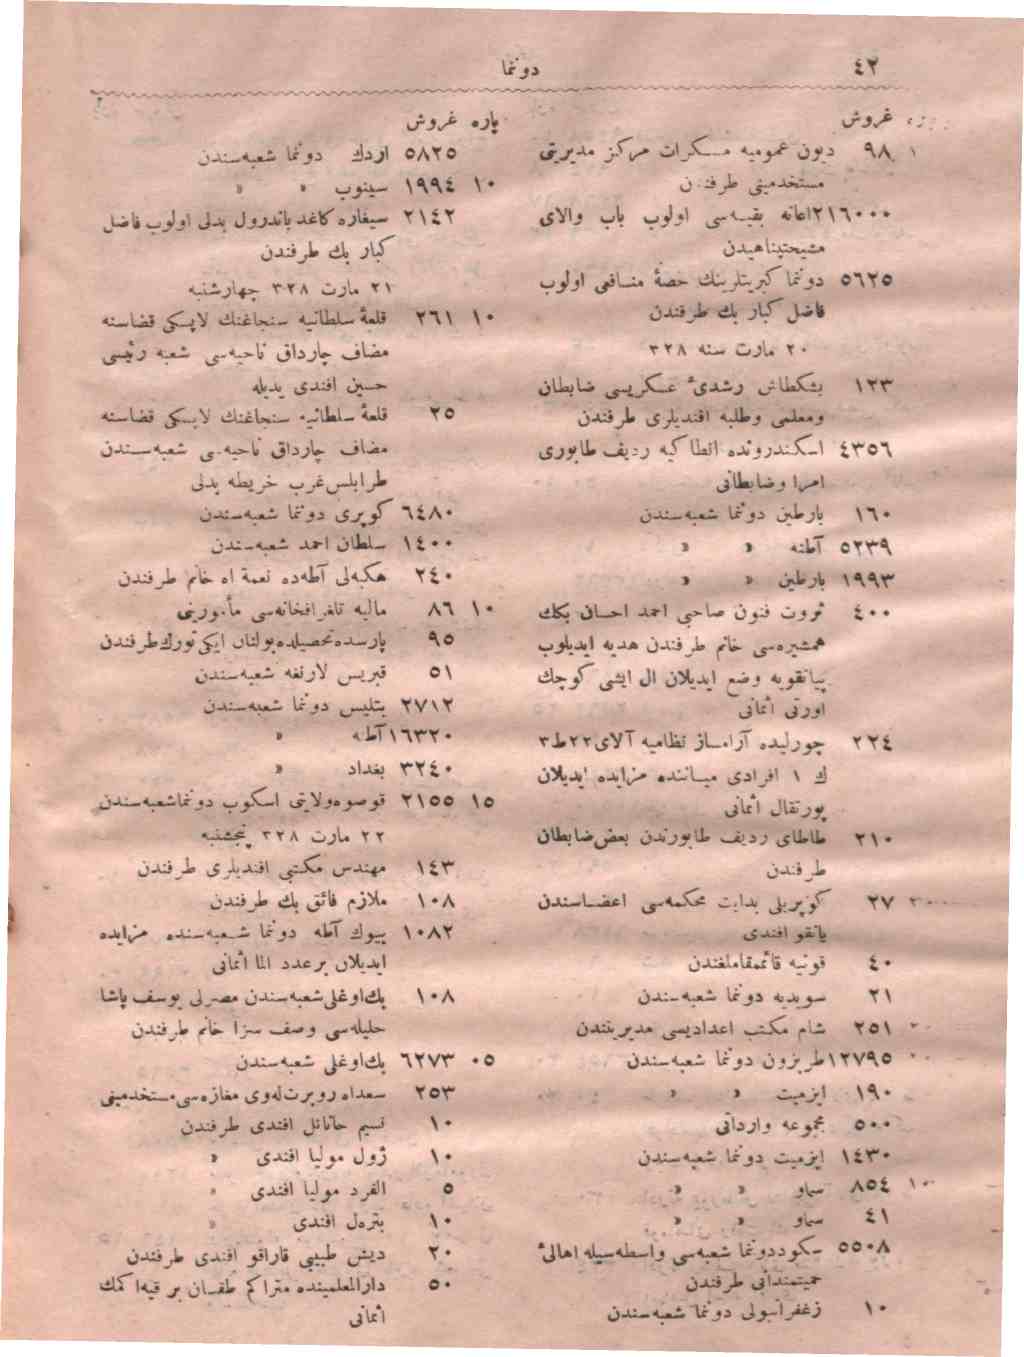 ٤٢
دونما
غروش
٩٨ ديون عموميه مسكرات مركز مديريتى
مستخدمينى طرفندن
٢١٦٠٠٠ اعانه بقيه‌سى اولوب باب والاى
مشيختپناهيدن
٥٦٢٥ دونما كبريتلرينك حصۀ منافعى اولوب
فاضل كبار بك طرفندن
٢٠ مارت سنه ٣٢٨
١٢٣ بشكطاش رشدئ عسكريسى ضابطان
ومعلمى وطلبه افنديلرى طرفندن
٤٣٥٦ اسكندرونده انطاكيه رديف طابورى
امرا وضابطانى
١٦٠ بارطين دونما شعبه‌سندن
٥٢٣٩ آطنه » »
١٩٩٣ بارطين » »
٤٠٠ ثروت فنون صاحبى احمد احسان بكك
همشيره‌سى خانم طرفندن هديه ايديلوب
پيانقويه وضع ايديلان ال ايشى كوچك
اورتى اثمانى
٢٢٤ چورليده آرامساز نظاميه آلاى ٢٢ ط ٣
ك ١ افرادى ميساننده مزايده ايديلان
پورتقال اثمانى
٢١٠ طاطاى رديف طابورندن بعض ضابطان
طرفندن
٢٧ كوپريلى بدايت محكمه‌سى اعضاسندن
يانقو افندى
٤٠ قونيه قائممقاملغندن
٢١ سويديه دونما شعبه‌سندن
٢٥١ شام مكتب اعداديسى مديريتندن
١٢٧٩٥ طربزون دونما شعبه‌سندن
١٩٠ ايزميت » »
٥٠٠ مجموعه وارداتى
١٤٣٠ ايزميت دونما شعبه‌سندن
١٠ ٨٥٤ سماو » »
٤١ سماو » »
٥٥٠٨ سكود دونما شعبه‌سى واسطه‌سيله اهالئ
حميتمندانى طرفندن
١٠ زغفرانبولى دونما شعبه‌سندن
پاره غروش
٥٨٢٥ اردك دونما شعبه‌سندن
١٠ ١٩٩٤ سينوب » »
٢١٤٢ سيغاره كاغد باندرول بدلى اولوب فاضل
كبار بك طرفندن
٢١ مارت ٣٢٨ چهارشنبه
١٠ ٢٦١ قلعۀ سلطانيه سنجاغنك لاپسكى قضاسنه
مضاف چارداق ناحيه‌سى شعبه رئيسى
حسين افندى يديله
٢٥ قلعۀ سلطانيه سنجاغنك لاپسكى قضاسنه
مضاف چارداق ناحيه‌سى شعبه‌سندن
طرابلس‌غرب خريطه بدلى
٦٤٨٠ كوپرى دونما شعبه‌سندن
١٤٠٠ سلطان احمد شعبه‌سندن
٢٤٠ هكبه‌لى آطه‌ده نعمة اه خانم طرفندن
١٠ ٨٦ ماليه تلغرافخانه‌سى مأمورينى
٩٥ پارسده تحصيلده بولنان ايكى تورك طرفندن
٥١ قبريس لارنقه شعبه‌سندن
٢٧١٢ بتليس دونما شعبه‌سندن
١٦٣٢٠ آطنه »
٣٢٤٠ بغداد »
١٥ ٢١٥٥ قوصوه ولايتى اسكوب دونما شعبه‌سندن
٢٢ مارت ٣٢٨ پنجشنبه
١٤٣ مهندس مكتبى افنديلرى طرفندن
١٠٨ ملازم فائق بك طرفندن
١٠٨٢ بيوك آطه دونما شعبه‌سنده مزايده
ايديلان بر عدد الما اثمانى
١٠٨ بك‌اوغلى شعبه‌سندن مصرلى يوسف پاشا
حليله‌سى وصف سزا خانم طرفندن
٠٥ ٦٢٧٣ بك‌اوغلى شعبه‌سندن
٢٥٣ سعداه روبرت‌له‌وى مغازه‌سى مستخدمينى
١٠ نسيم حانائل افندى طرفندن
١٠ ژول موليا افندى »
٥ الفرد موليا افندى »
١٠ بتره‌ل افندى »
٢٠ ديش طبيبى قاراقو افندى طرفندن
٥٠ دارالمعلمينده متراكم طقسان بر قيه اكمك
اثمانى